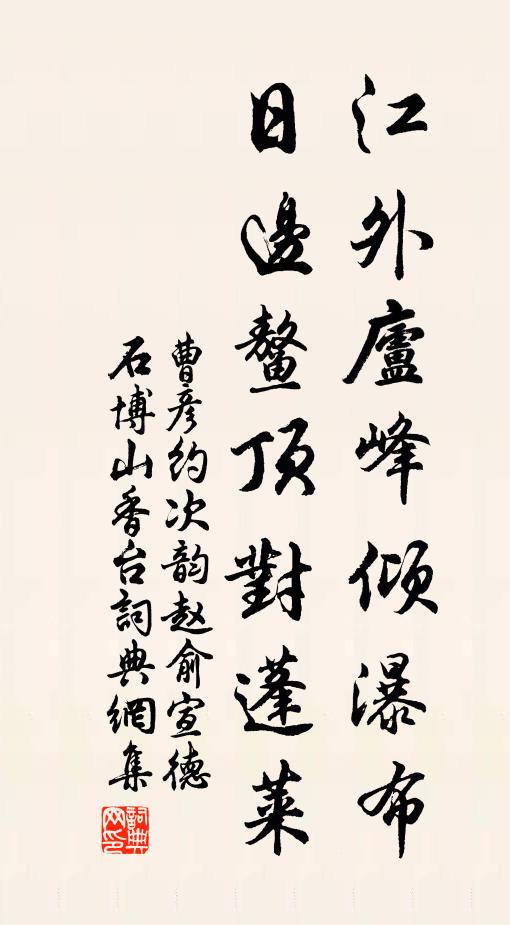 江外廬峰傾瀑布
日邊鰲頂對蓬萊
曹彦約次韵赵俞宣德
石博山香台詞典網集
詞典
网印